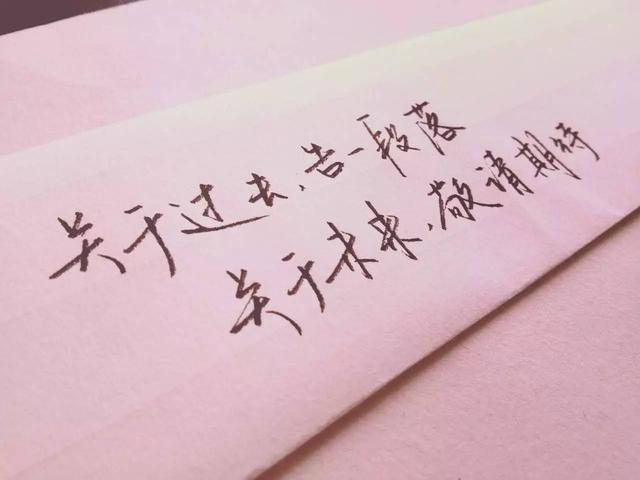 关于过去，告一段落
关于未来，敬请期待